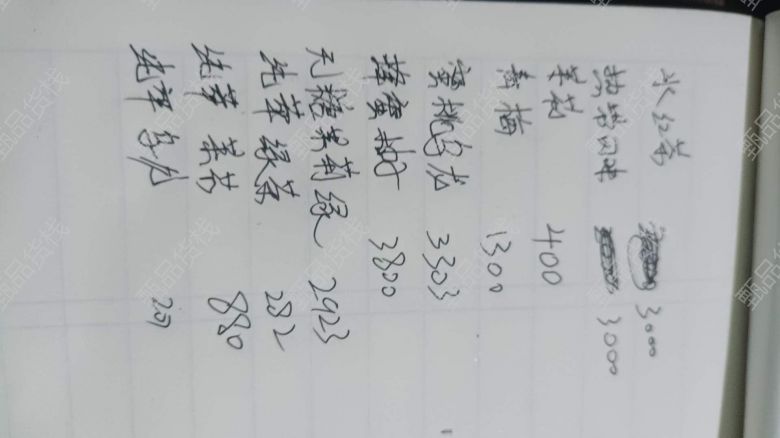 冰红茶 3000
热带风味 3000
茉莉 400
青梅 1300
蜜桃乌龙 3303
蜂蜜柚 3800
无糖茉莉绿 2923
纯萃绿茶 282
纯萃 茉 880
纯萃 乌龙
甄品货栈